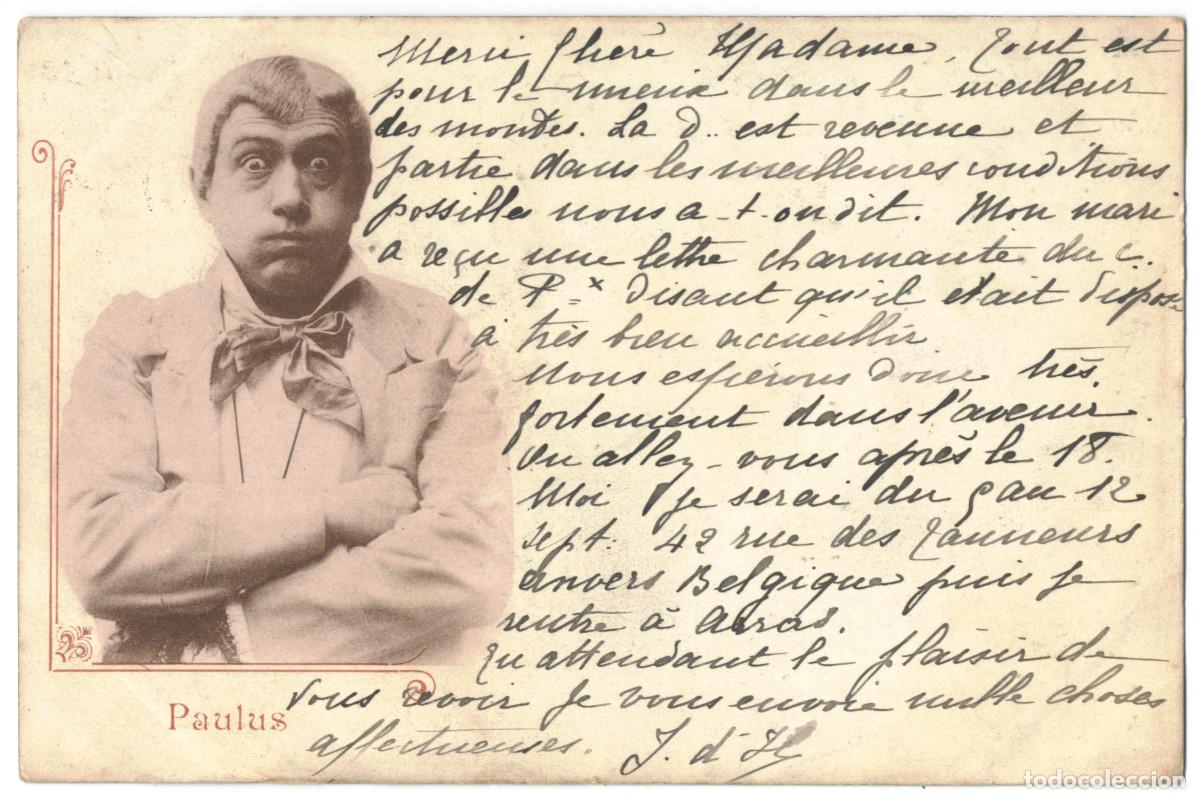 Merci Chère Madame, tout est
pour le mieux dans le meilleur
des mondes. La d.. est revenue et
partie dans les meilleures conditions
possibles nous a-t-on dit. Mon mari
a reçu une lettre charmante du c.
de P=x disant qu'il était disposé
à très bien accueillir
Nous espérons donc très
fortement dans l'avenir.
Ou allez-vous après le 18.
Moi je serai du 9 au 12
sept. 42 rue des Tanneurs
Anvers Belgique puis je
rentre à Arras.
En attendant le plaisir de
vous revoir je vous envoie mille choses
affectueuses. J. d'H
Paulus
todocoleccion